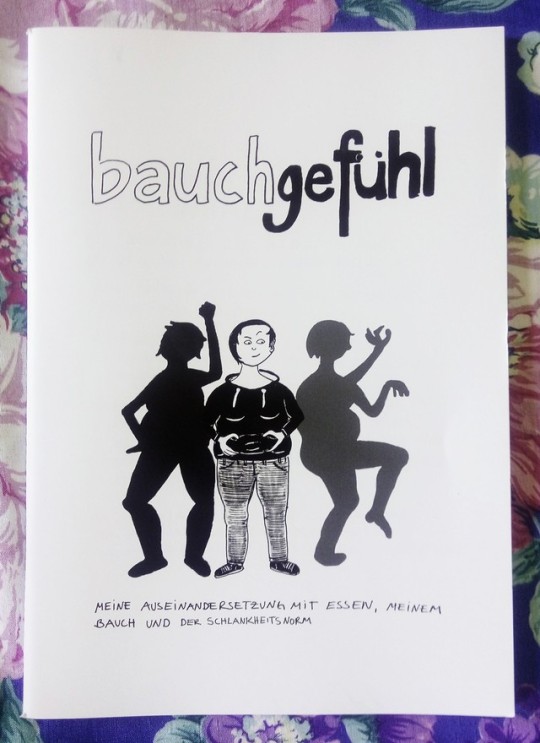 bauchgefühl
MEINE AUSEINANDERSETZUNG MIT ESSEN, MEINEM
BAUCH UND DER SCHLANKHEITSNORM